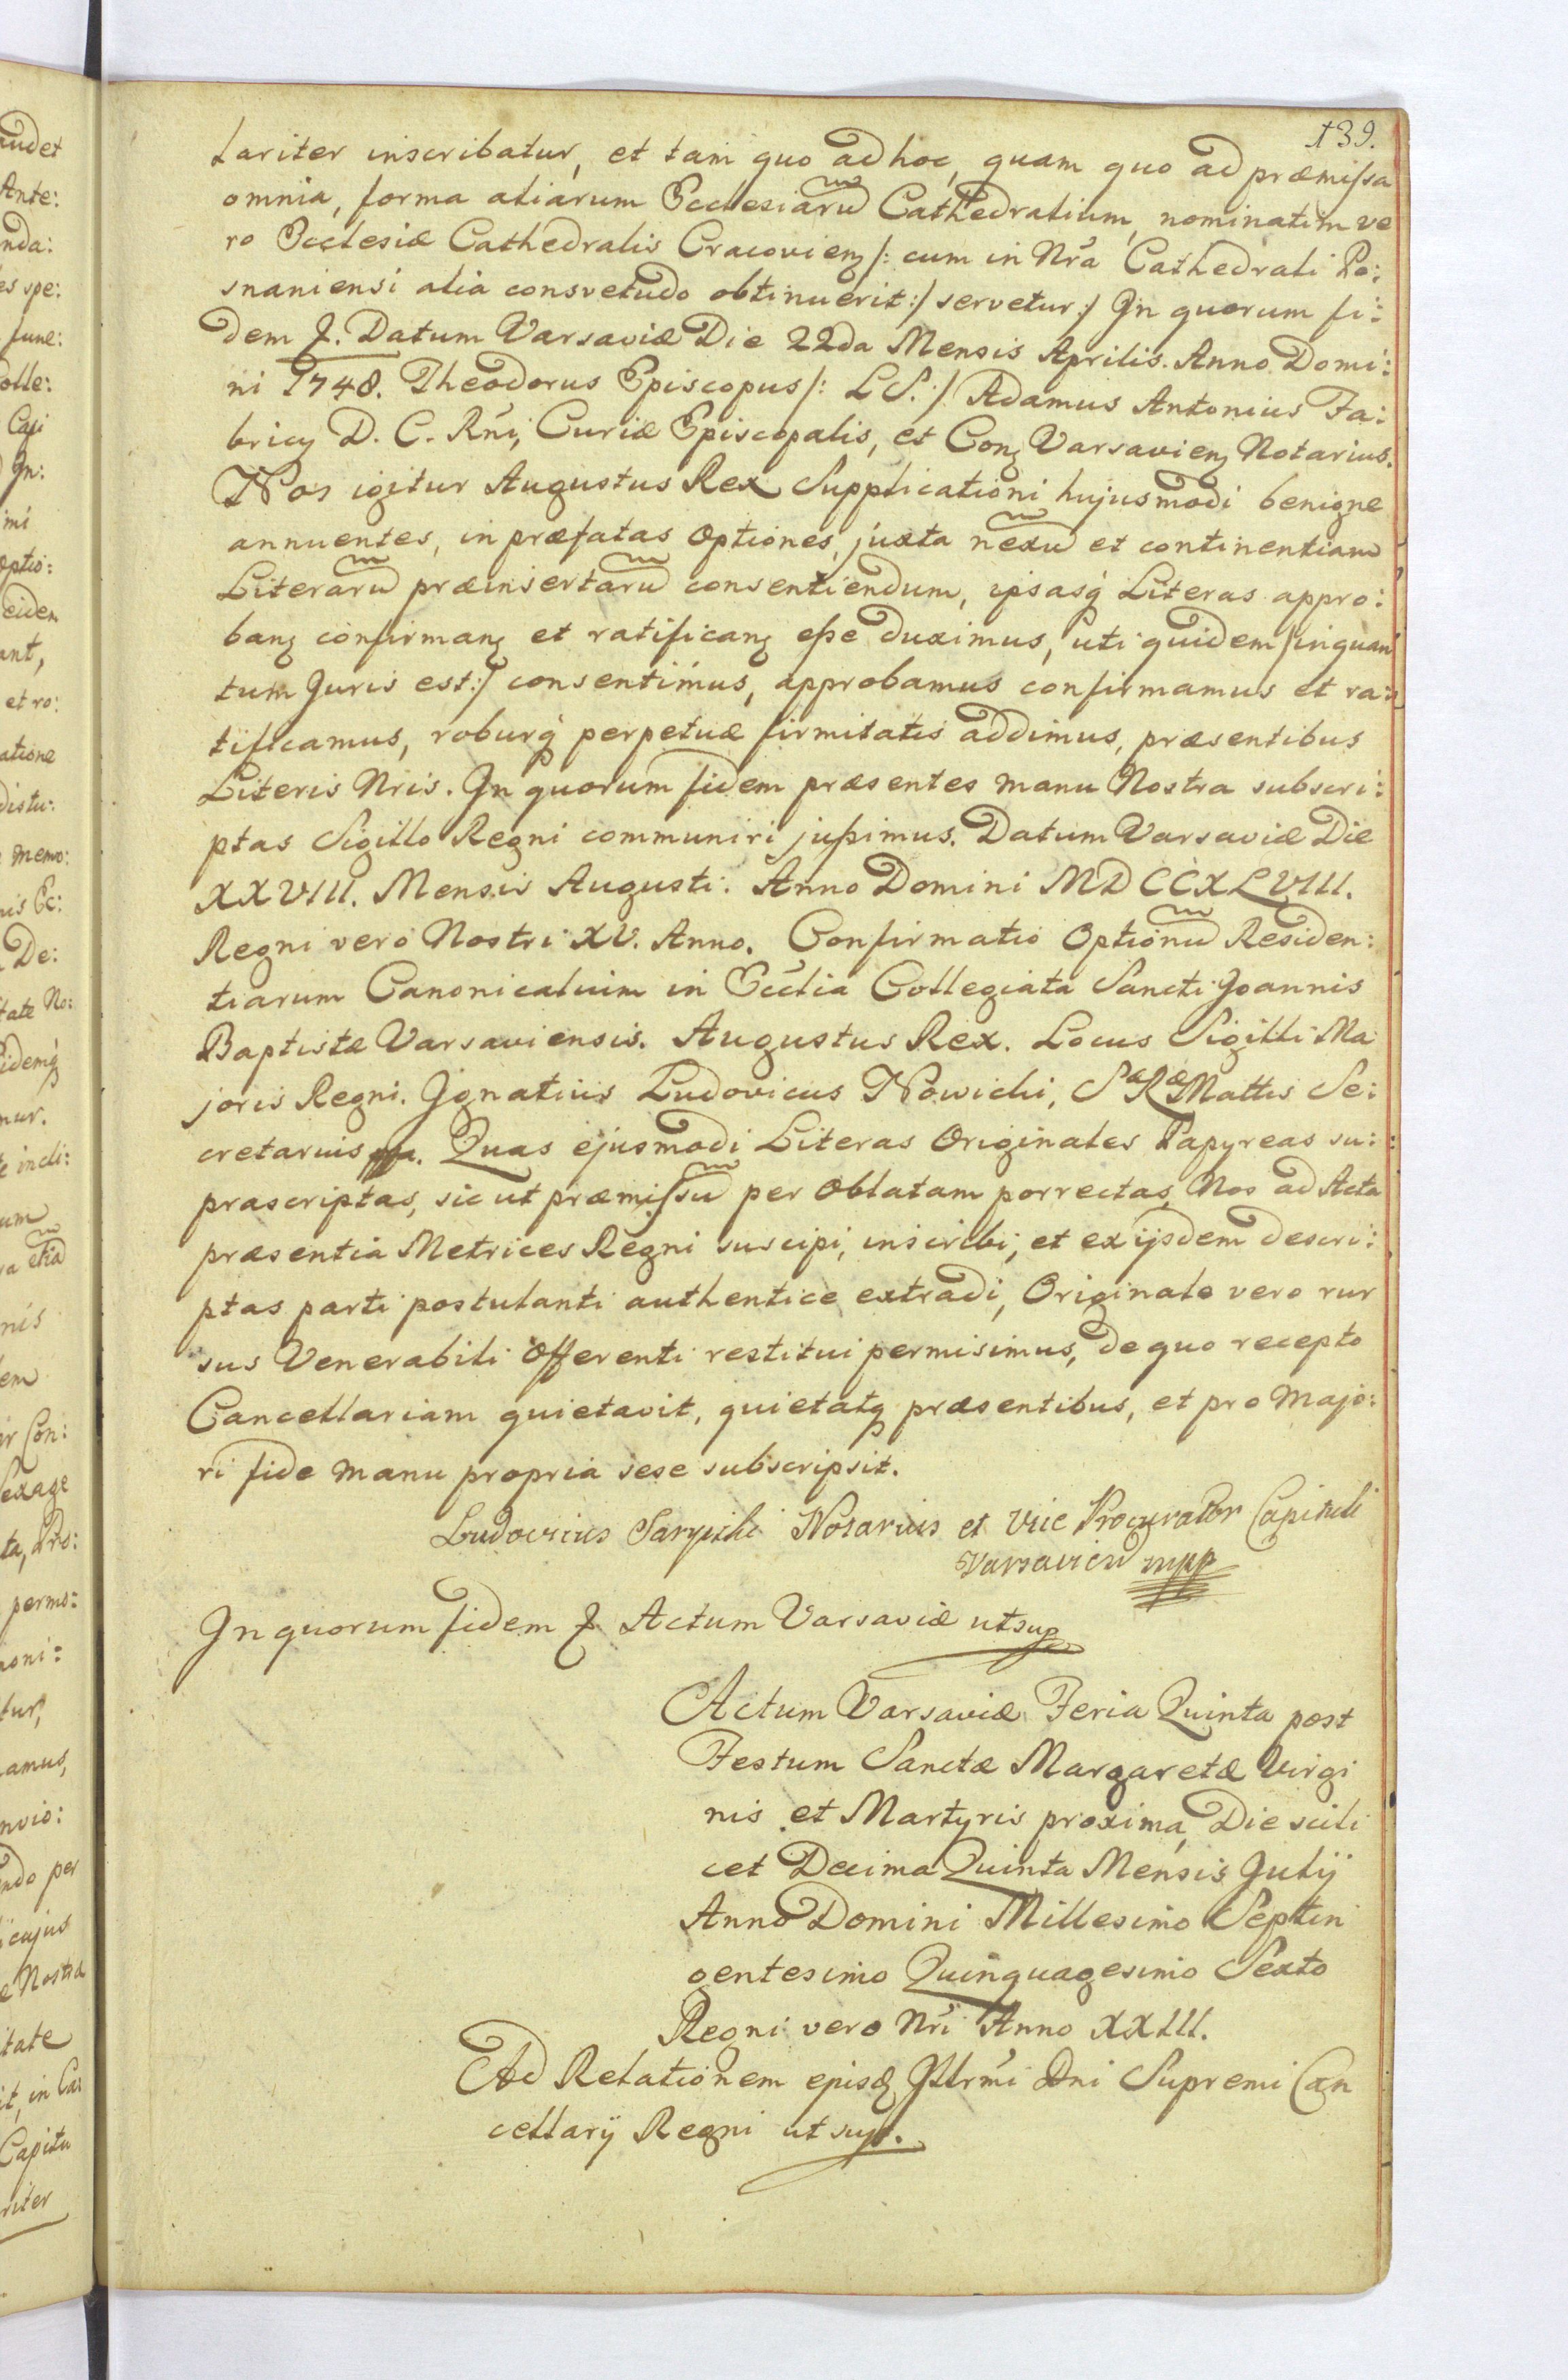 139.
tariter inscribatur, et tam quo ad hoc, quam quo ad præmissa
omnia, forma aliarum Ecclesiaru Cathedralium, nominatim ve
ro Ecclesiæ Cathedralis Cracovien /: cum in Nrã Cathedrali Po:
snaniensi alia consvetudo obtinuerit :/ servetur :/ In quorum fi:
dem Datum Varsaviæ Die 22da Mensis Aprilis. Anno Domi:
ni 1748. Theodorus Episcopus /: L S. :/ Adamus Antonius Fa:
bricy D. C. Rñi, Curiæ Episcopalis, et Con Varsavien Notarius.
Nos igitur Augustus Rex Supplicationi hujusmodi benigne
annuentes, in præfatas Optiones, juxta nexu et continentiam
Literaru præinsertaru consentiendum, ipsasq Literas appro:
band confirmand et ratificand esse duximus, uti quidem /inquan
tum Juris est :/ consentimus, approbamus confirmamus et ra:
tificamus, roburq perpetuæ firmitatis addimus, præsentibus
Literis Nris. In quorum fidem præsentes manu Nostra subscri:
ptas Sigillo Regni communiri jussimus. Datum Varsaviæ Die
XXVIII. Mensis Augusti. Anno Domini MDCCXLVIII.
Regni vero Nostri XV. Anno. Confirmatio Optionu Residen:
tiarum Canonicalium in Ecclia Collegiata Sancti Joannis
Baptistæ Varsaviensis. Augustus Rex. Locus Sigilli Ma
joris Regni. Ignatius Ludovicus Nowicki, Sæ Ræ Mattis Se:
cretarius. Quas ejusmodi Literas Originales Papyreas su:
prascriptas, sic ut præmissu per Oblatam porrectas, Nos ad Acta
præsentia Metrices Regni suscipi, inscribi, et ex ijsdem descri:
ptas parti postulanti authentice extradi, Originale vero rur
sus Venerabili Offerenti restitui permisimus, de quo recepto
Cancellariam quietavit, quietatq præsentibus, et pro majo:
ri fide manu propria sese subscripsit.
Ludovicus Notarius et Vice Procurator Capituli
Varsavien mpp
In quorum fidem Actum Varsaviæ ut sup
Actum Varsaviæ Feria Quinta post
Festum Sanctæ Margaretæ Virgi
nis et Martyris proxima, Die scili
cet Decima Quinta Mensis Julij
Anno Domini Millesimo Septin
gentesimo Quinquagesimo Sexto
Regni vero Nri Anno XXIII.
Ad Relationem Illrmi Dni Supremi Can
cellarij Regni ut sup.